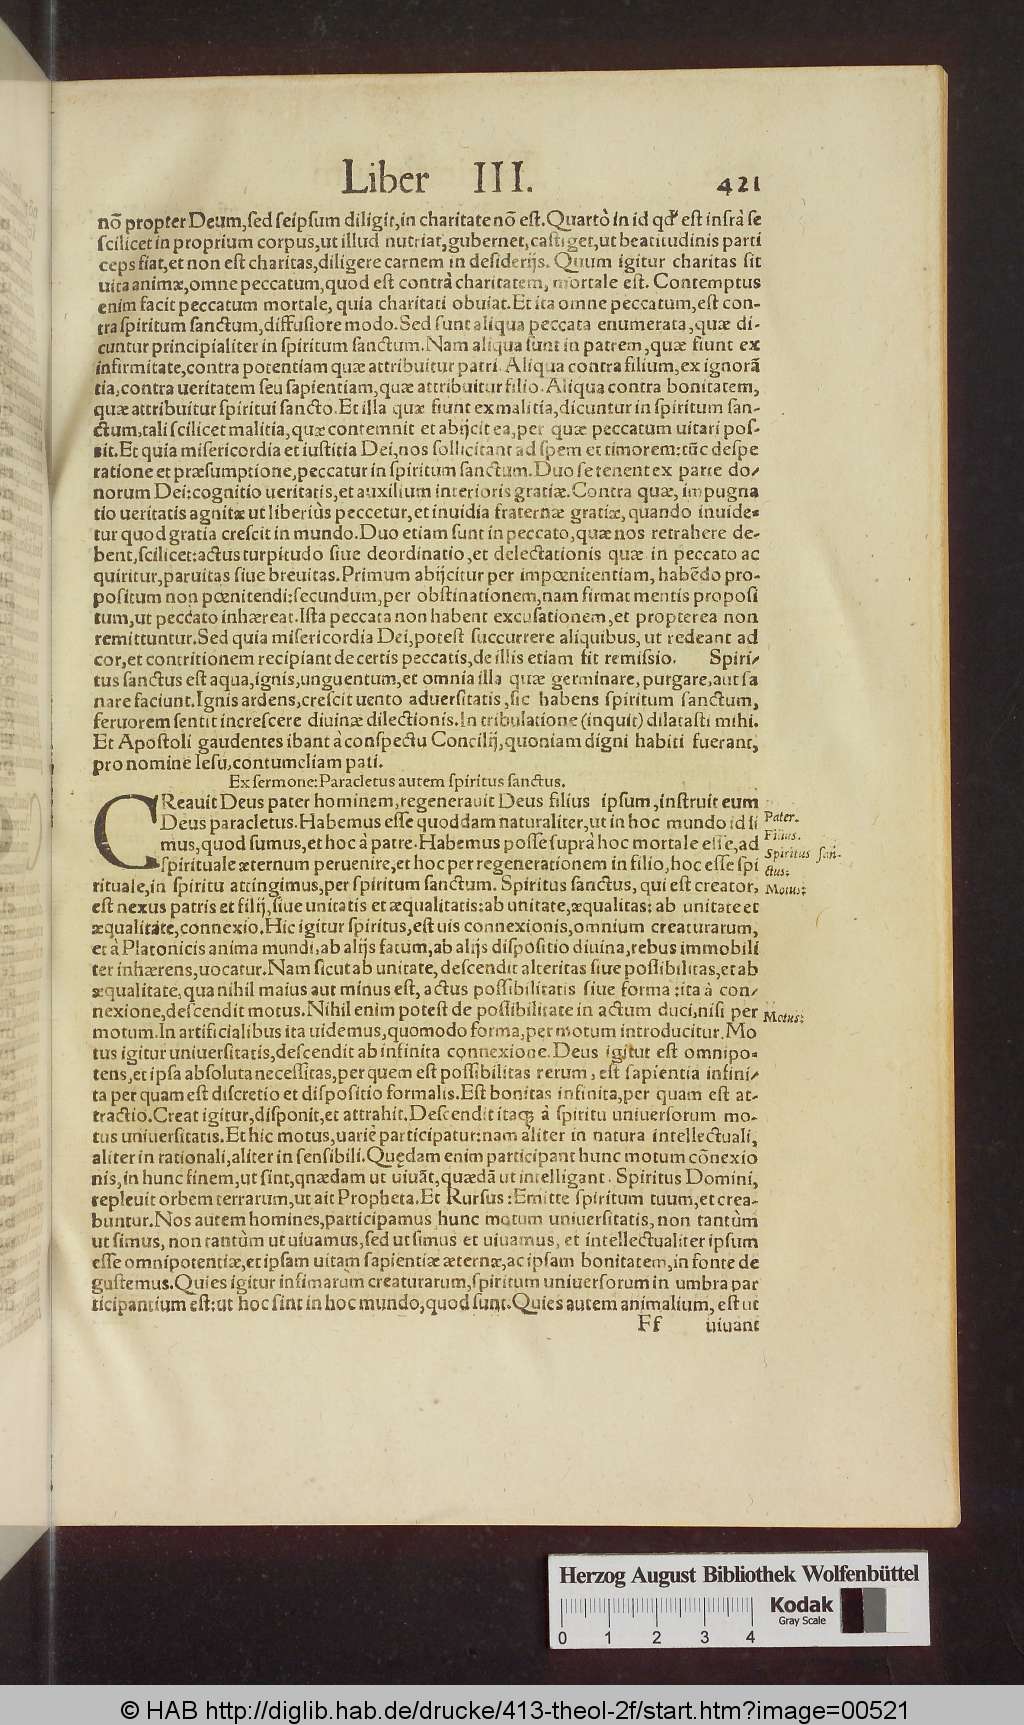 Liber III. 421
nõ propter Deum,sed seipsum diligit,in charitate nõ est.Quartò in id qď est infrà se
scilicet in proprium corpus,ut illud nutriat,gubernet,castiget,ut beatitudinis parti
ceps fiat,et non est charitas,diligere carnem in desiderijs. Quum igitur charitas sit
uita animæ,omne peccatum,quod est contrà charitatem, mortale est. Contemptus
enim facit peccatum mortale, quia charitati obuiat.Et ita omne peccatum,est con-
tra spiritum sanctum,diffusiore modo.Sed sunt aliqua peccata enumerata,quæ di-
cuntur principialiter in spiritum sanctum.Nam aliqua sunt in patrem,quæ fiunt ex
infirmitate,contra potentiam quæ attribuitur patri. Aliqua contra filium,ex ignorã
tia,contra ueritatem seu sapientiam,quæ attribuitur filio.Aliqua contra bonitatem,
quæ attribuitur spiritui sancto.Et illa quæ fiunt ex malitia,dicuntur in spiritum san-
ctum,tali scilicet malitia,quæ contemnit et abijcit ea,per quæ peccatum uitari pos-
sit.Et quia misericordia et iustitia Dei,nos sollicitant ad spem et timorem:tũc despe
ratione et præsumptione,peccatur in spiritum sanctum.Duo se tenent ex parte do-
norum Dei:cognitio ueritatis,et auxilium interioris gratiæ.Contra quæ, impugna
tio ueritatis agnitæ ut liberiùs peccetur,et inuidia fraternæ gratiæ, quando inuide-
tur quod gratia crescit in mundo.Duo etiam sunt in peccato,quæ nos retrahere de-
bent,scilicet:actus turpitudo siue deordinatio,et delectationis quæ in peccato ac
quiritur,paruitas siue breuitas.Primum abijcitur per impœnitentiam, habẽdo pro-
positum non pœnitendi:secundum,per obstinationem,nam firmat mentis proposi
tum,ut peccato inhæreat.Ista peccata non habent excusationem,et propterea non
remittuntur.Sed quia misericordia Dei,potest succurrere aliquibus, ut redeant ad
cor,et contritionem recipiant de certis peccatis,de illis etiam fit remissio. Spiri-
tus sanctus est aqua,ignis,unguentum,et omnia illa quæ germinare,purgare,aut sa
nare faciunt.Ignis ardens,crescit uento aduersitatis,sic habens spiritum sanctum,
feruorem sentit increscere diuinæ dilectionis.In tribulatione (inquit) dilatasti mihi.
Et Apostoli gaudentes ibant à conspectu Concilij,quoniam digni habiti fuerant,
pro nomine Iesu,contumeliam pati.
Ex sermone:Paracletus autem spiritus sanctus.
CReauit Deus pater hominem,regenerauit Deus filius ipsum,instruit eum
Deus paracletus.Habemus esse quoddam naturaliter,ut in hoc mundo id si
mus,quod sumus,et hoc à patre.Habemus posse suprà hoc mortale esse,ad
spirituale æternum peruenire,et hoc per regenerationem in filio,hoc esse spi
rituale,in spiritu attingimus,per spiritum sanctum. Spiritus sanctus, qui est creator,
est nexus patris et filij,siue unitatis et æqualitatis:ab unitate,æqualitas:ab unitate et
æqualitate,connexio.Hic igitur spiritus,est uis connexionis,omnium creaturarum,
et à Platonicis anima mundi,ab alijs fatum,ab alijs dispositio diuina,rebus immobili
ter inhærens,uocatur.Nam sicut ab unitate,descendit alteritas siue possibilitas,et ab
æqualitate,qua nihil maius aut minus est, actus possibilitatis siue forma:ita à con-
nexione,descendit motus.Nihil enim potest de possibilitate in actum duci,nisi per
motum.In artificialibus ita uidemus,quomodo forma,per motum introducitur.Mo
tus igitur uniuersitatis,descendit ab infinita connexione.Deus igitur est omnipo-
tens,et ipsa absoluta necessitas,per quem est possibilitas rerum, est sapientia infini-
ta per quam est discretio et dispositio formalis.Est bonitas infinita,per quam est at-
tractio.Creat igitur,disponit,et attrahit.Descendit itaq; à spiritu uniuersorum mo-
tus uniuersitatis.Et hic motus,uariè participatur:nam aliter in natura intellectuali,
aliter in rationali,aliter in sensibili.Quędam enim participant hunc motum cõnexio
nis,in hunc finem,ut sint,qnædam ut uiuãt,quædã ut intelligant. Spiritus Domini,
repleuit orbem terrarum,ut ait Propheta.Et Rursus:Emitte spiritum tuum,et crea-
buntur.Nos autem homines,participamus hunc motum uniuersitatis,non tantùm
ut simus,non tantùm ut uiuamus,sed ut simus et uiuamus, et intellectualiter ipsum
esse omnipotentiæ,et ipsam uitam sapientiæ æternæ,ac ipsam bonitatem,in fonte de
gustemus.Quies igitur infimarum creaturarum,spiritum uniuersorum in umbra par
ticipantium est:ut hoc sint in hoc mundo,quod sunt.Quies autem animalium, est ut
Ff uiuant
Pater.
Filius.
Spiritus san-
ctus:
Motus:
Motus:
Herzog August Bibliothek Wolfenbüttel
Kodak
Gray Scale
0 1 2 3 4
© HAB http://diglib.hab.de/drucke/413-theol-2f/start.htm?image=00521